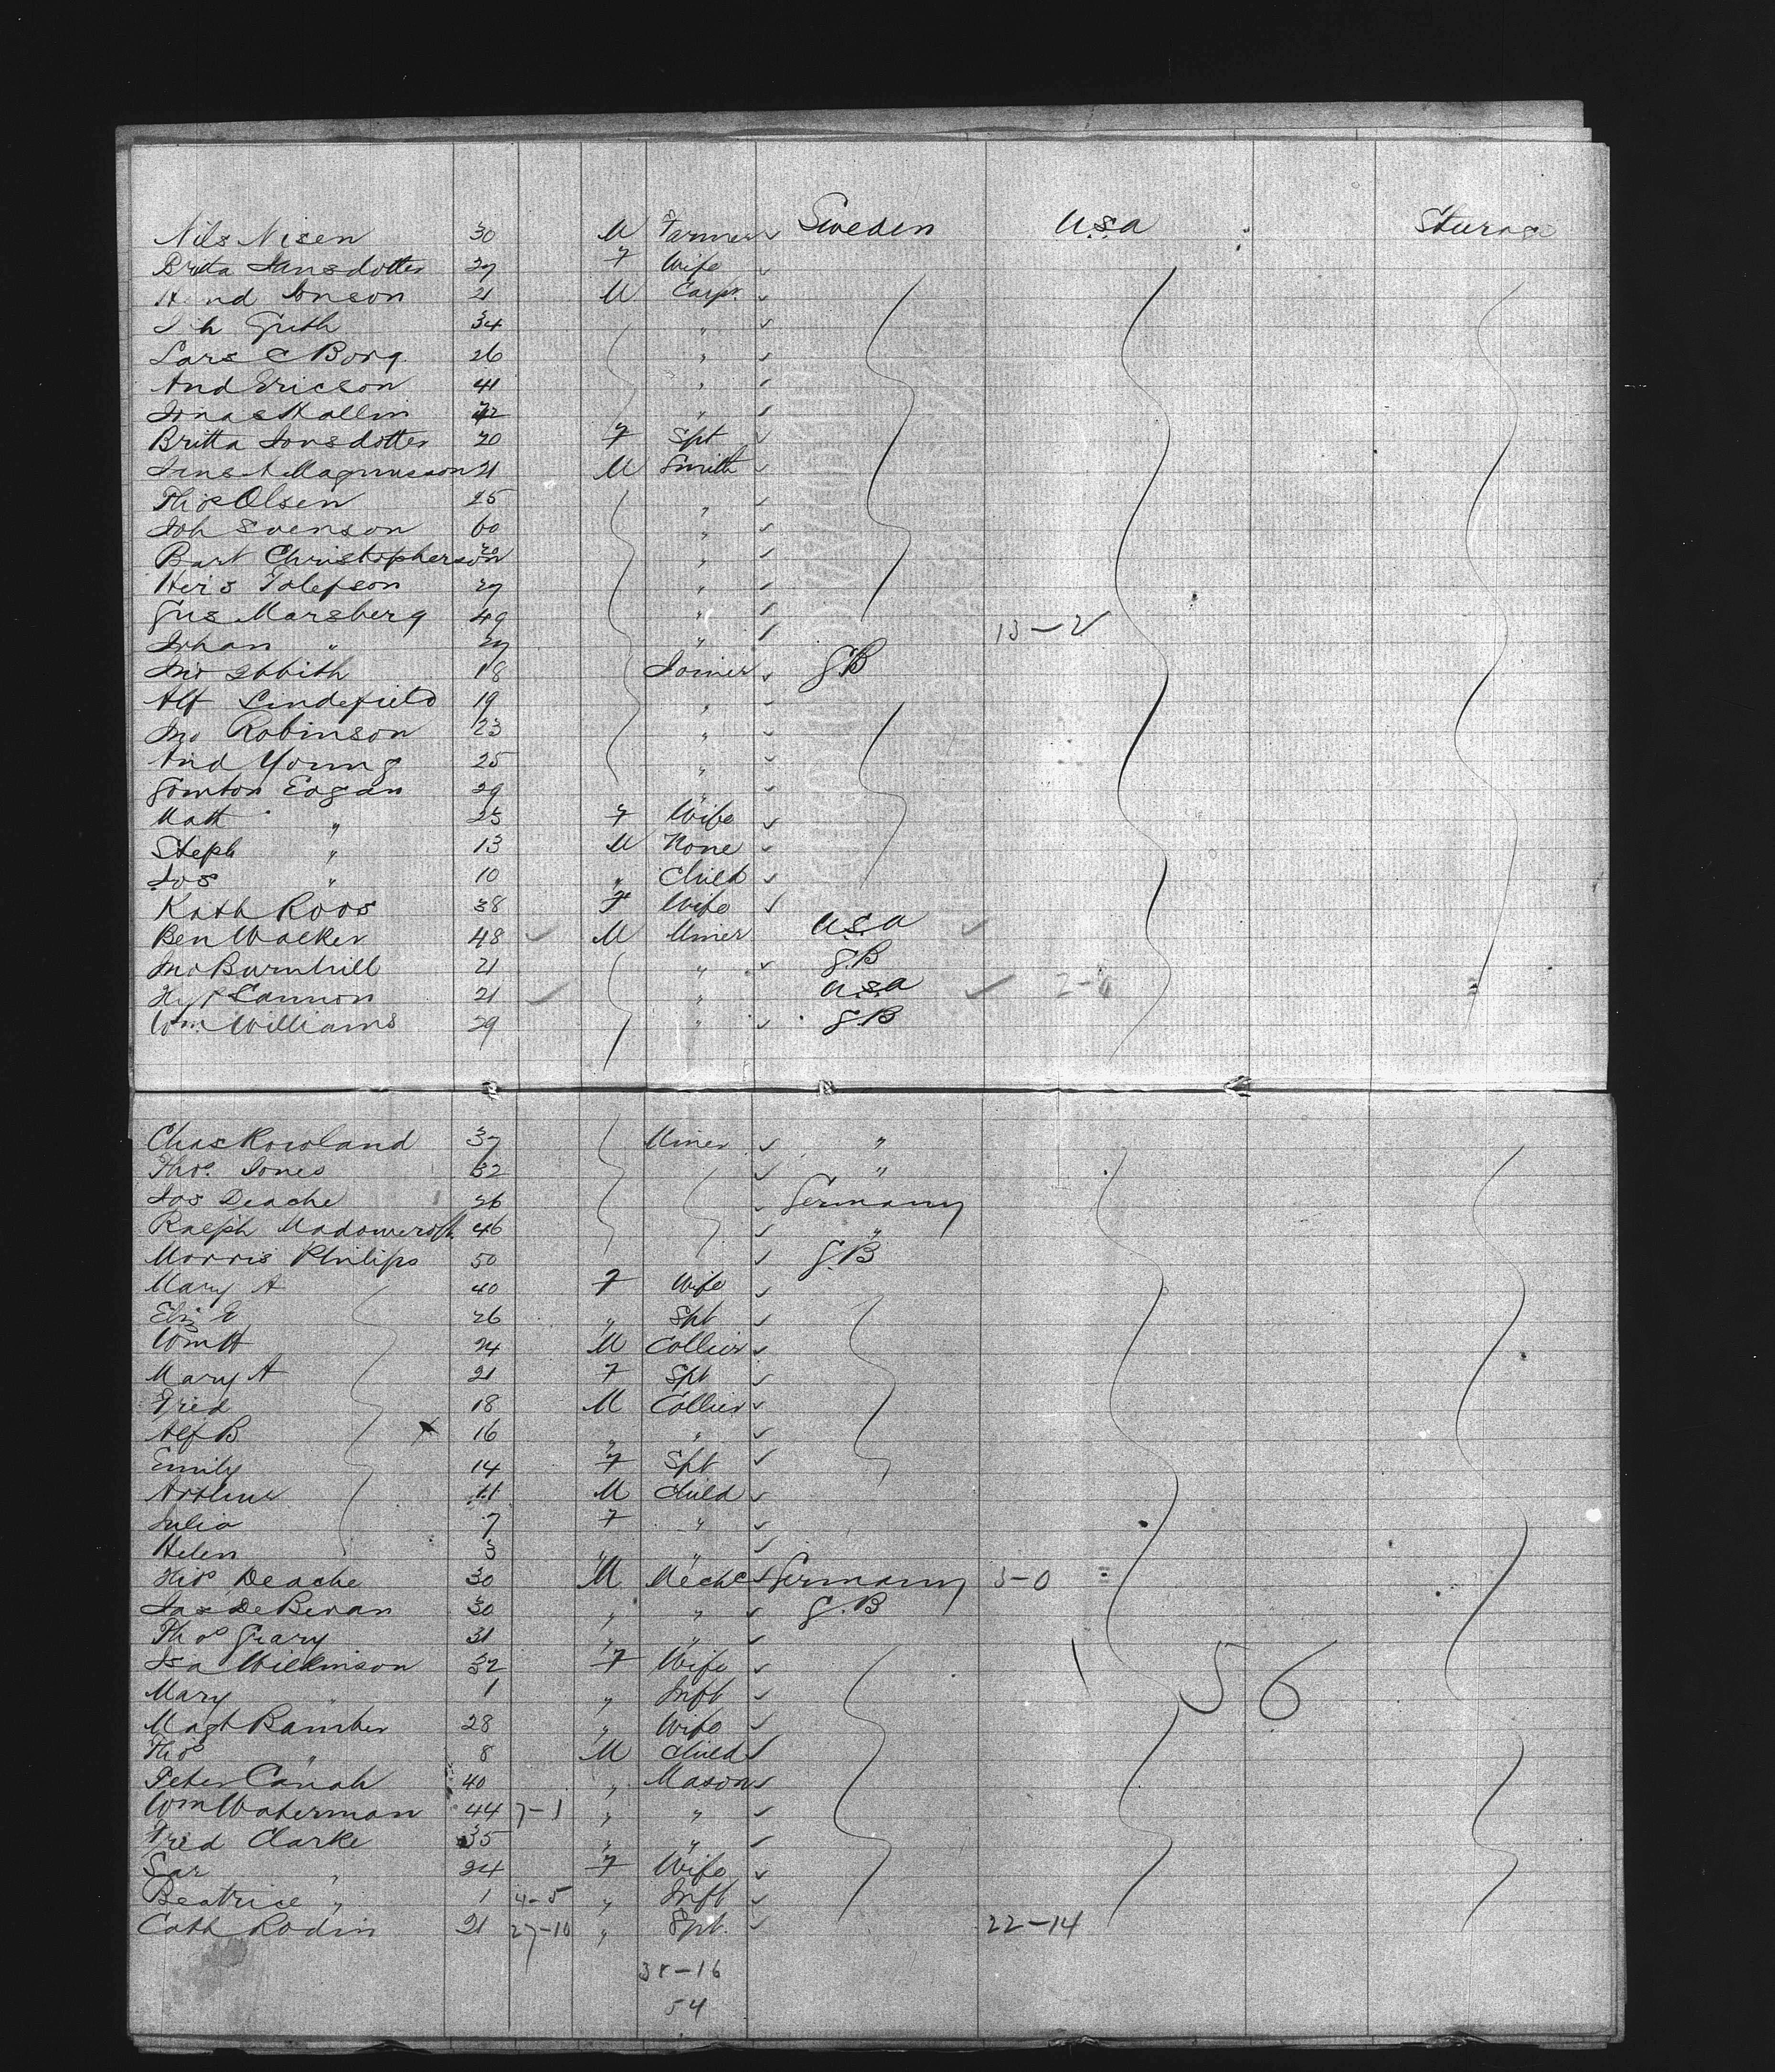 Nils Nisen 30 M Farmer Sweden U.S.A Sturage
Brita Jansdotter 29 F Wife
And Jonson 21 M Carpr.
Joh Groth 34 "
Lars C Borg. 26 "
And Ericson 41 "
Jonas Hallin 42 "
Britta Jonsdotter 20 F Spt
Jens A Magnusson 21 M Smith
Thos Olsen 25 "
Joh Svenson 60 "
Bart Christopherson 20 "
Hers Tolefson 29 "
Gus Marsberg 49 "
Johan " 29 " 13-2
Jno 18 Joiner G.B
Alf Lindefield 19 "
Jno Robinson 23 "
And Young 25 "
Eagan 29 "
Matt " 23 F Wife
Steph " 13 M None
Jos " 10 " Child
Kath Roos 38 F Wife
Ben Walker 48 M Miner U.S.A
Jno Burnhill 21 " G.B
Hy Cannon 21 " U.S.A 2-0
Wm Williams 29 " G.B
Chas Rowland 37 Miner "
Thos. Jones 32 "
Jos Deache 26 Germany
Ralph Madowcroft 46 "
Morris Philips 50 G.B
Mary A 40 F Wife
Eliz E 26 " Spt
Wm H 24 M Collier
Mary A 21 F Spt
Fred 18 M Collier
Alf B x 16 " "
Emily 14 F Spt
Arthur 11 M Child
Julia 7 F "
Helen 3 " "
Thos Deache 30 M Mechc Germany 3-0
Jas DeBevan 30 " " G.B
Thos Geary 31 " "
Isa Wilkinson 32 F Wife 156
Mary " 1 " Inft
Magt Bamber 28 " Wife
Thos " 8 M Child
Peter Canah 40 " Mason
Wm Waterman 44 7-1 " "
Fred Clarke 35 " "
Sar " 24 F Wife
Beatrice " 1 4-5 " Inft
Cath Rodin 21 27-10 " Spt. 22-14
38-16
54